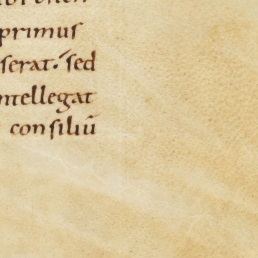 primus
serat. sed
ntellegat
consiliū